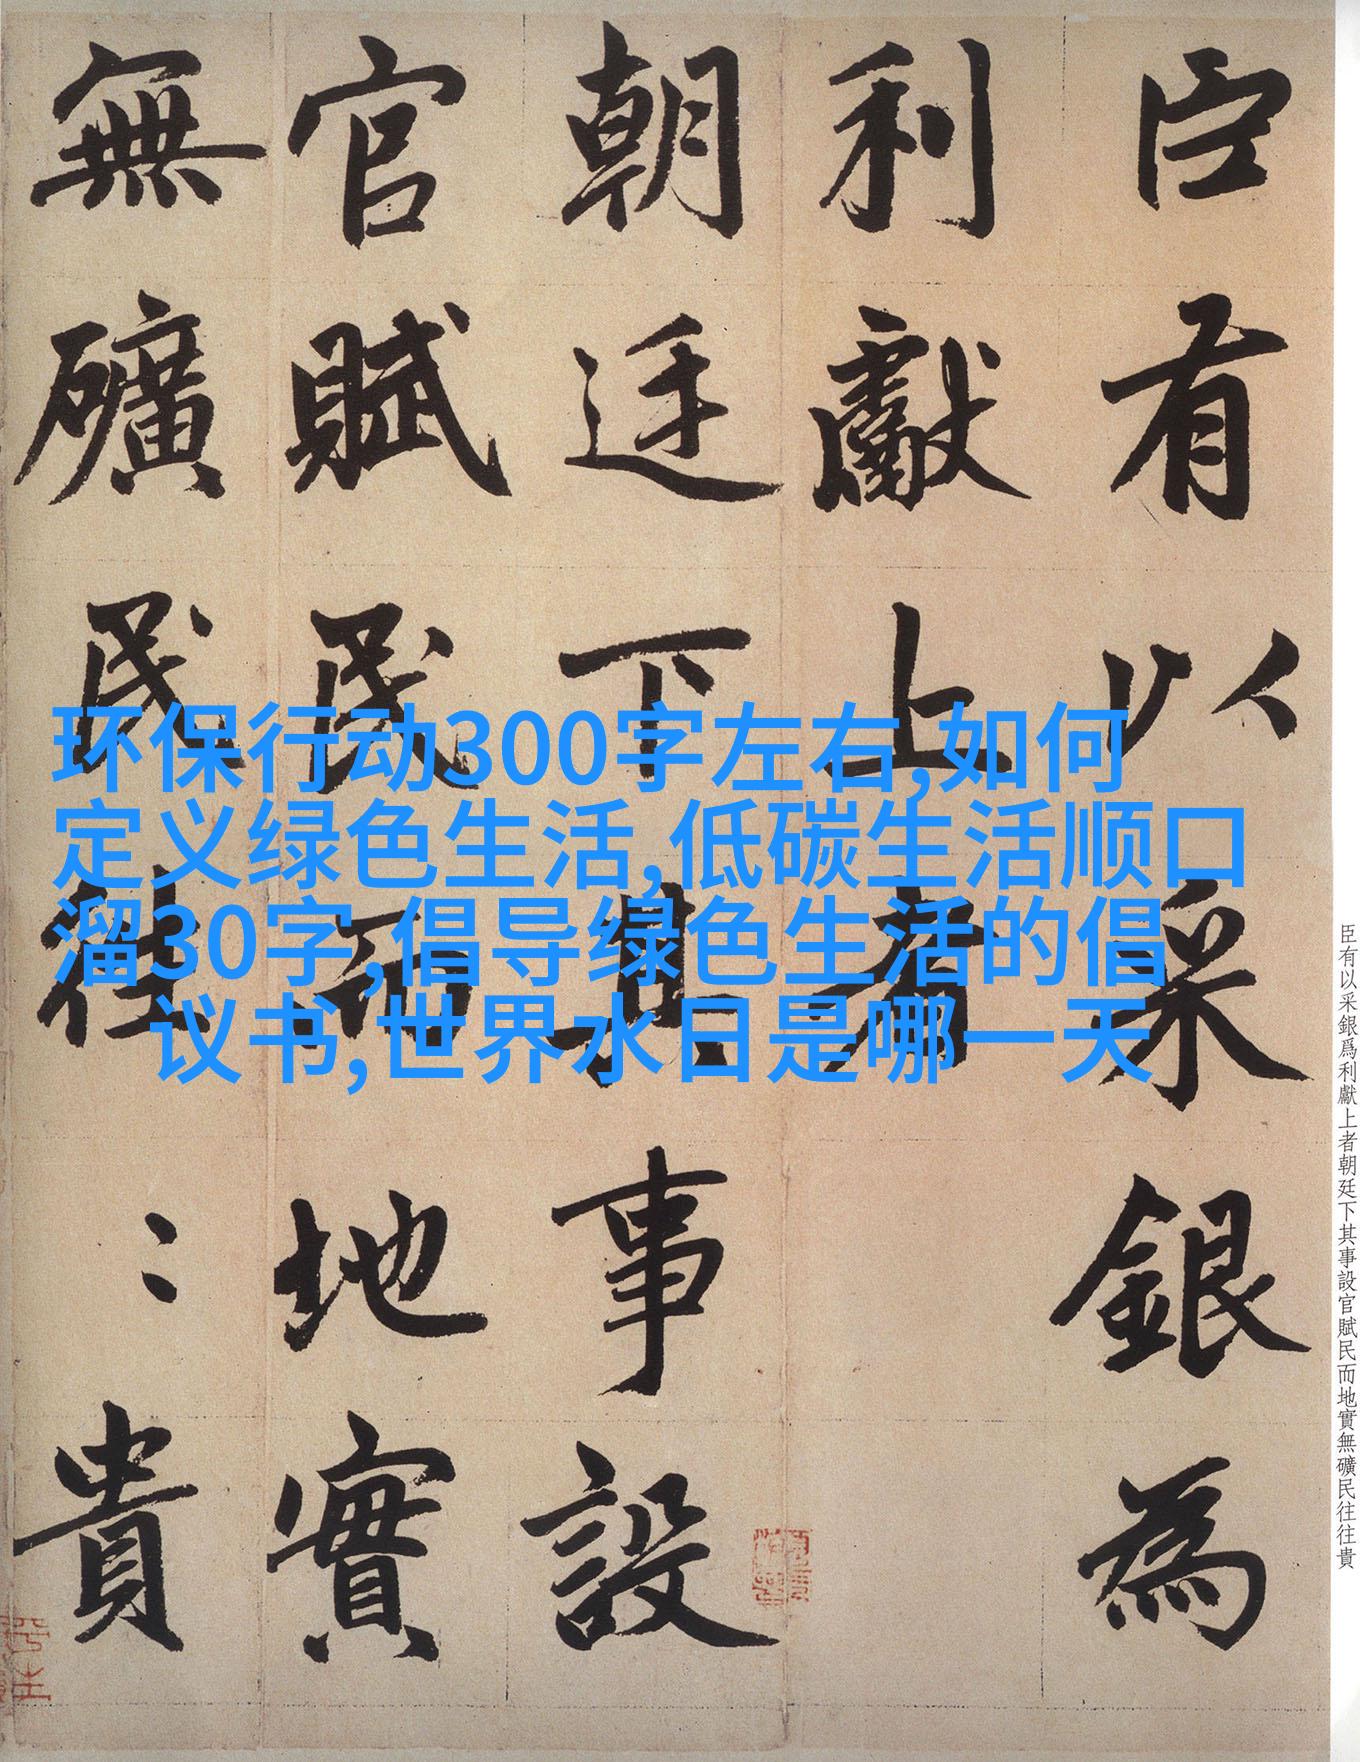 臣有以采銀為
利獻上者
朝廷下其事設
官賦民而地實
無礦民往〻貴
环保行动300字左右,如何
定义绿色生活,低碳生活顺口
溜30字,倡导绿色生活的倡
议书,世界水日是哪一天
臣有以采銀爲利獻上者朝廷下其事設官賦民而地實無礦民往往貴